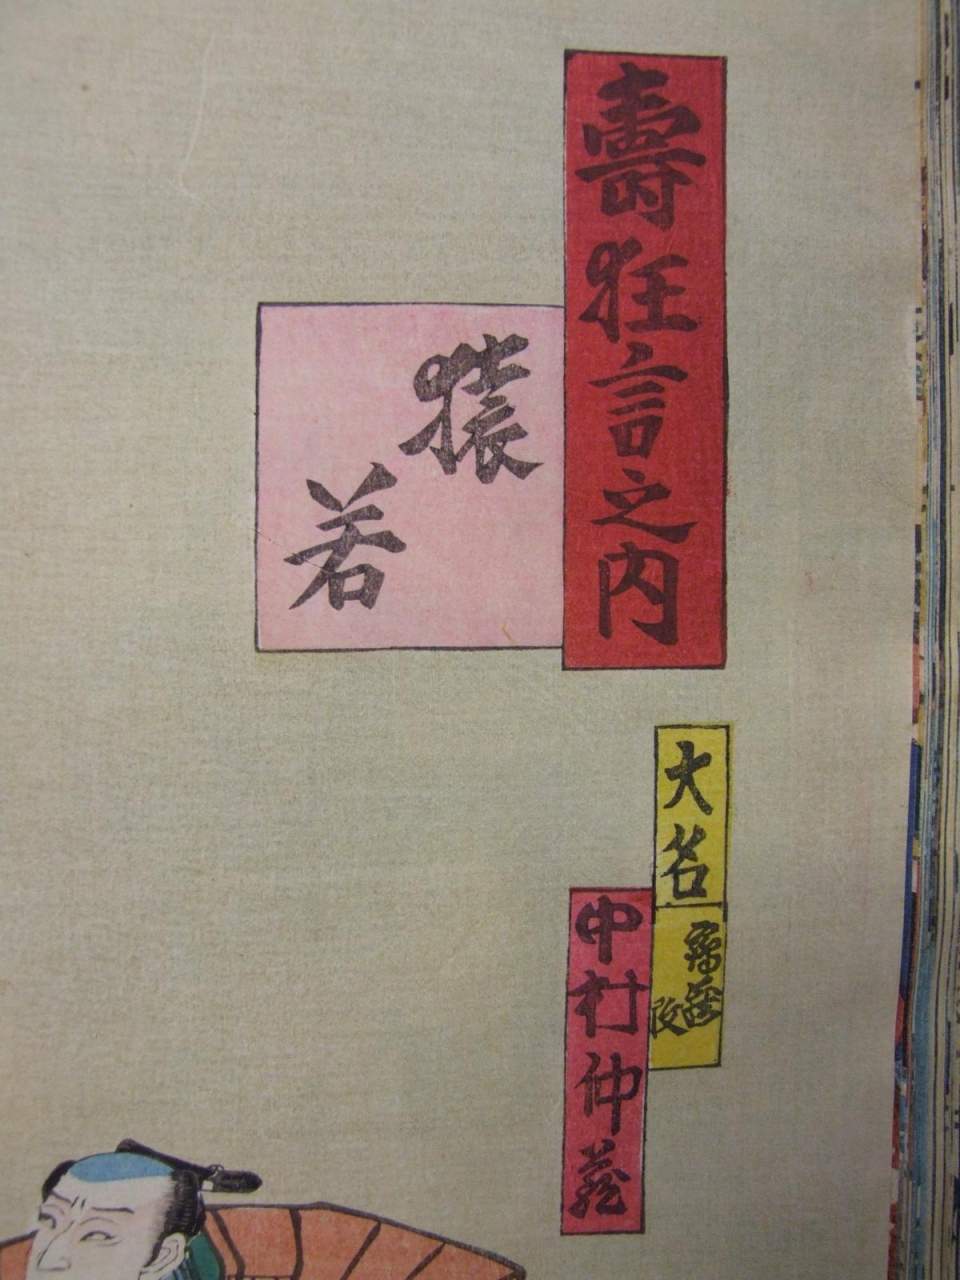 壽狂言之内
猿若
大名
中村仲蔵